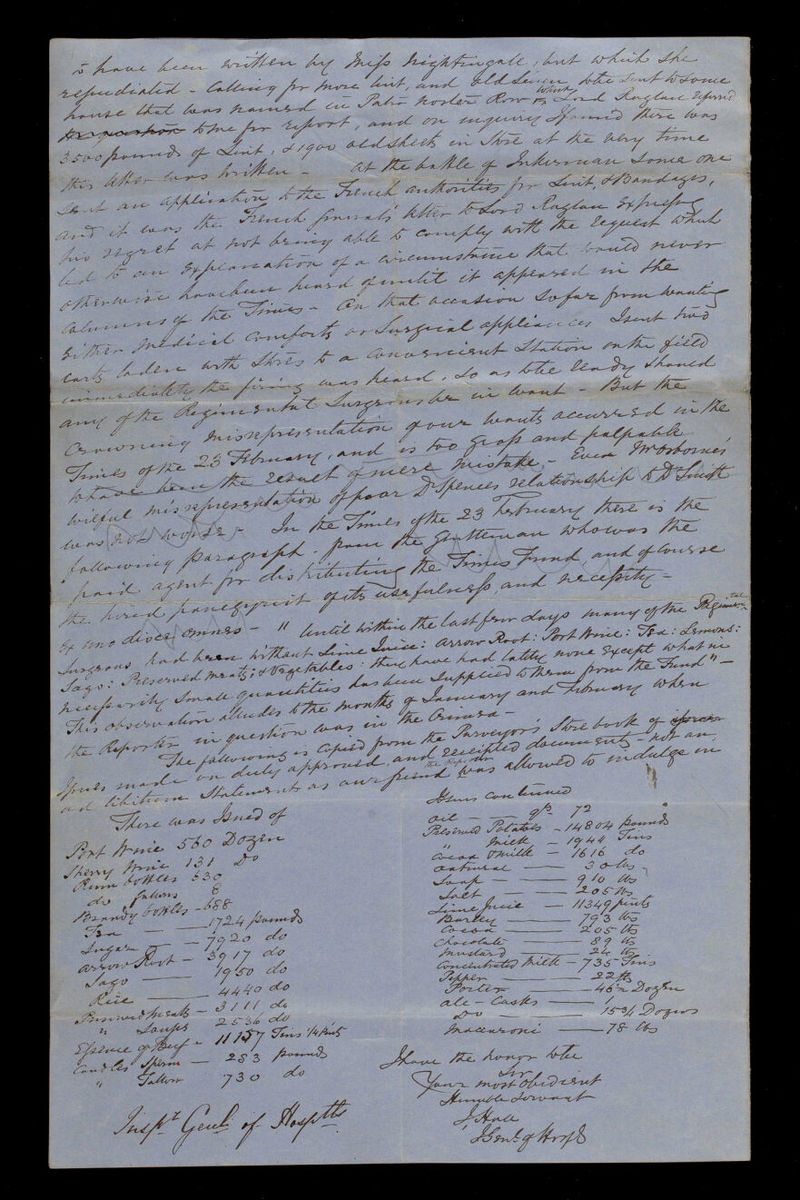 to have been written by Miss Nightingale, but which she
repudiated - calling for more lint, and old linen to be sent to some
house that was named in Pater noster Row which Lord Raglan referred
to me for report, and on inquiry I found there was
3500 pounds of Lint, & 1900 old sheets in Store at the very time
this letter was written - at the battle of Inkerman some one
sent an application to the French authorities for Lint, & Bandages,
and it was the French General's letter to Lord Raglan expressing
his regret at not being able to comply with the request which
led to an explanation of a circumstance that would never
otherwise have been heard of until it appeared in the
columns of the Times - On that occasion so far from wanting
either medical comforts or Surgical appliances I sent two
carts laden with Stores to a convenient Station on the field
immediately the firing was heard, so as to be ready should
any of the Regimental Surgeons be in want - But the
crowning misrepresentation of our wants occurred in the
Times of the 23 February, and is too gross and palpable
to have been the result of mere mistake - Even Mr Osborne's
wilful misrepresentation of poor Dr Spences relationship to Dr Smith
was not worse - In the Times of the 23 February there is the
following paragraph - from the gentleman who was the
paid agent for distributing the Times Fund and of course
the hired panegyrist of its usefulness, and necessity -
Ex uno disce omnes - " Until within the last few days many of the Regimental
Surgeons had been without Lime Juice: Arrow Root: Port Wine: Tea: Lemons:
Sago: Preserved meats: & Vegetables: they have had lately none except what in
necessarily small quantities has been supplied to them from the Fund" -
This observation alludes to the months of January and February when
the Reporter in question was in the Crimea -
The following is copied from the Purveyor's Store book of
Issues made on duly approved, and receipted documents - not an
ad libitum Statement as our friend the Reporter was allowed to indulge in
There was Issued of
Port Wine 560 Dozen
Sherry Wine 131 Do
Rum bottles 530
do Gallons 8
Brandy bottles - 688
Tea - 1724 pounds
Sugar - 7920 do
Arrow Root - 3917 do
Sago - 1950 do
Rice - 4440 do
Preserved meats - 3111 do
" Soups 2536 do
Essence of Beef - 11157 Tins ¼ Pints
Candles Sperm - 283 pounds
" Tallow 730 do
Insp.r Gen.l of Hosp.tls
Items continued
Oil - 72
Preserved Potatoes - 14804 pounds
" Milk - 1944 Tins
Cocoa & Milk - 1616 do
- 30 lbs
Soap - 910 lbs
Salt - 205 lbs
Lime Juice - 11349 pints
Barley - 793 lbs
Cocoa - 205 lbs
Chocolate - 89 lbs
Mustard - 24 lbs
Concentrated Milk - 735 Tins
Pepper - 22 lbs
Porter - 46½ Dozen
Ale - Casks - 1
Do - 15¾ Dozens
Maccaroni - 78 lbs
I have the honor to be
Sir
Your most obedient
Humble Servant
J. Hall
I Gen.l of Hosp.ls